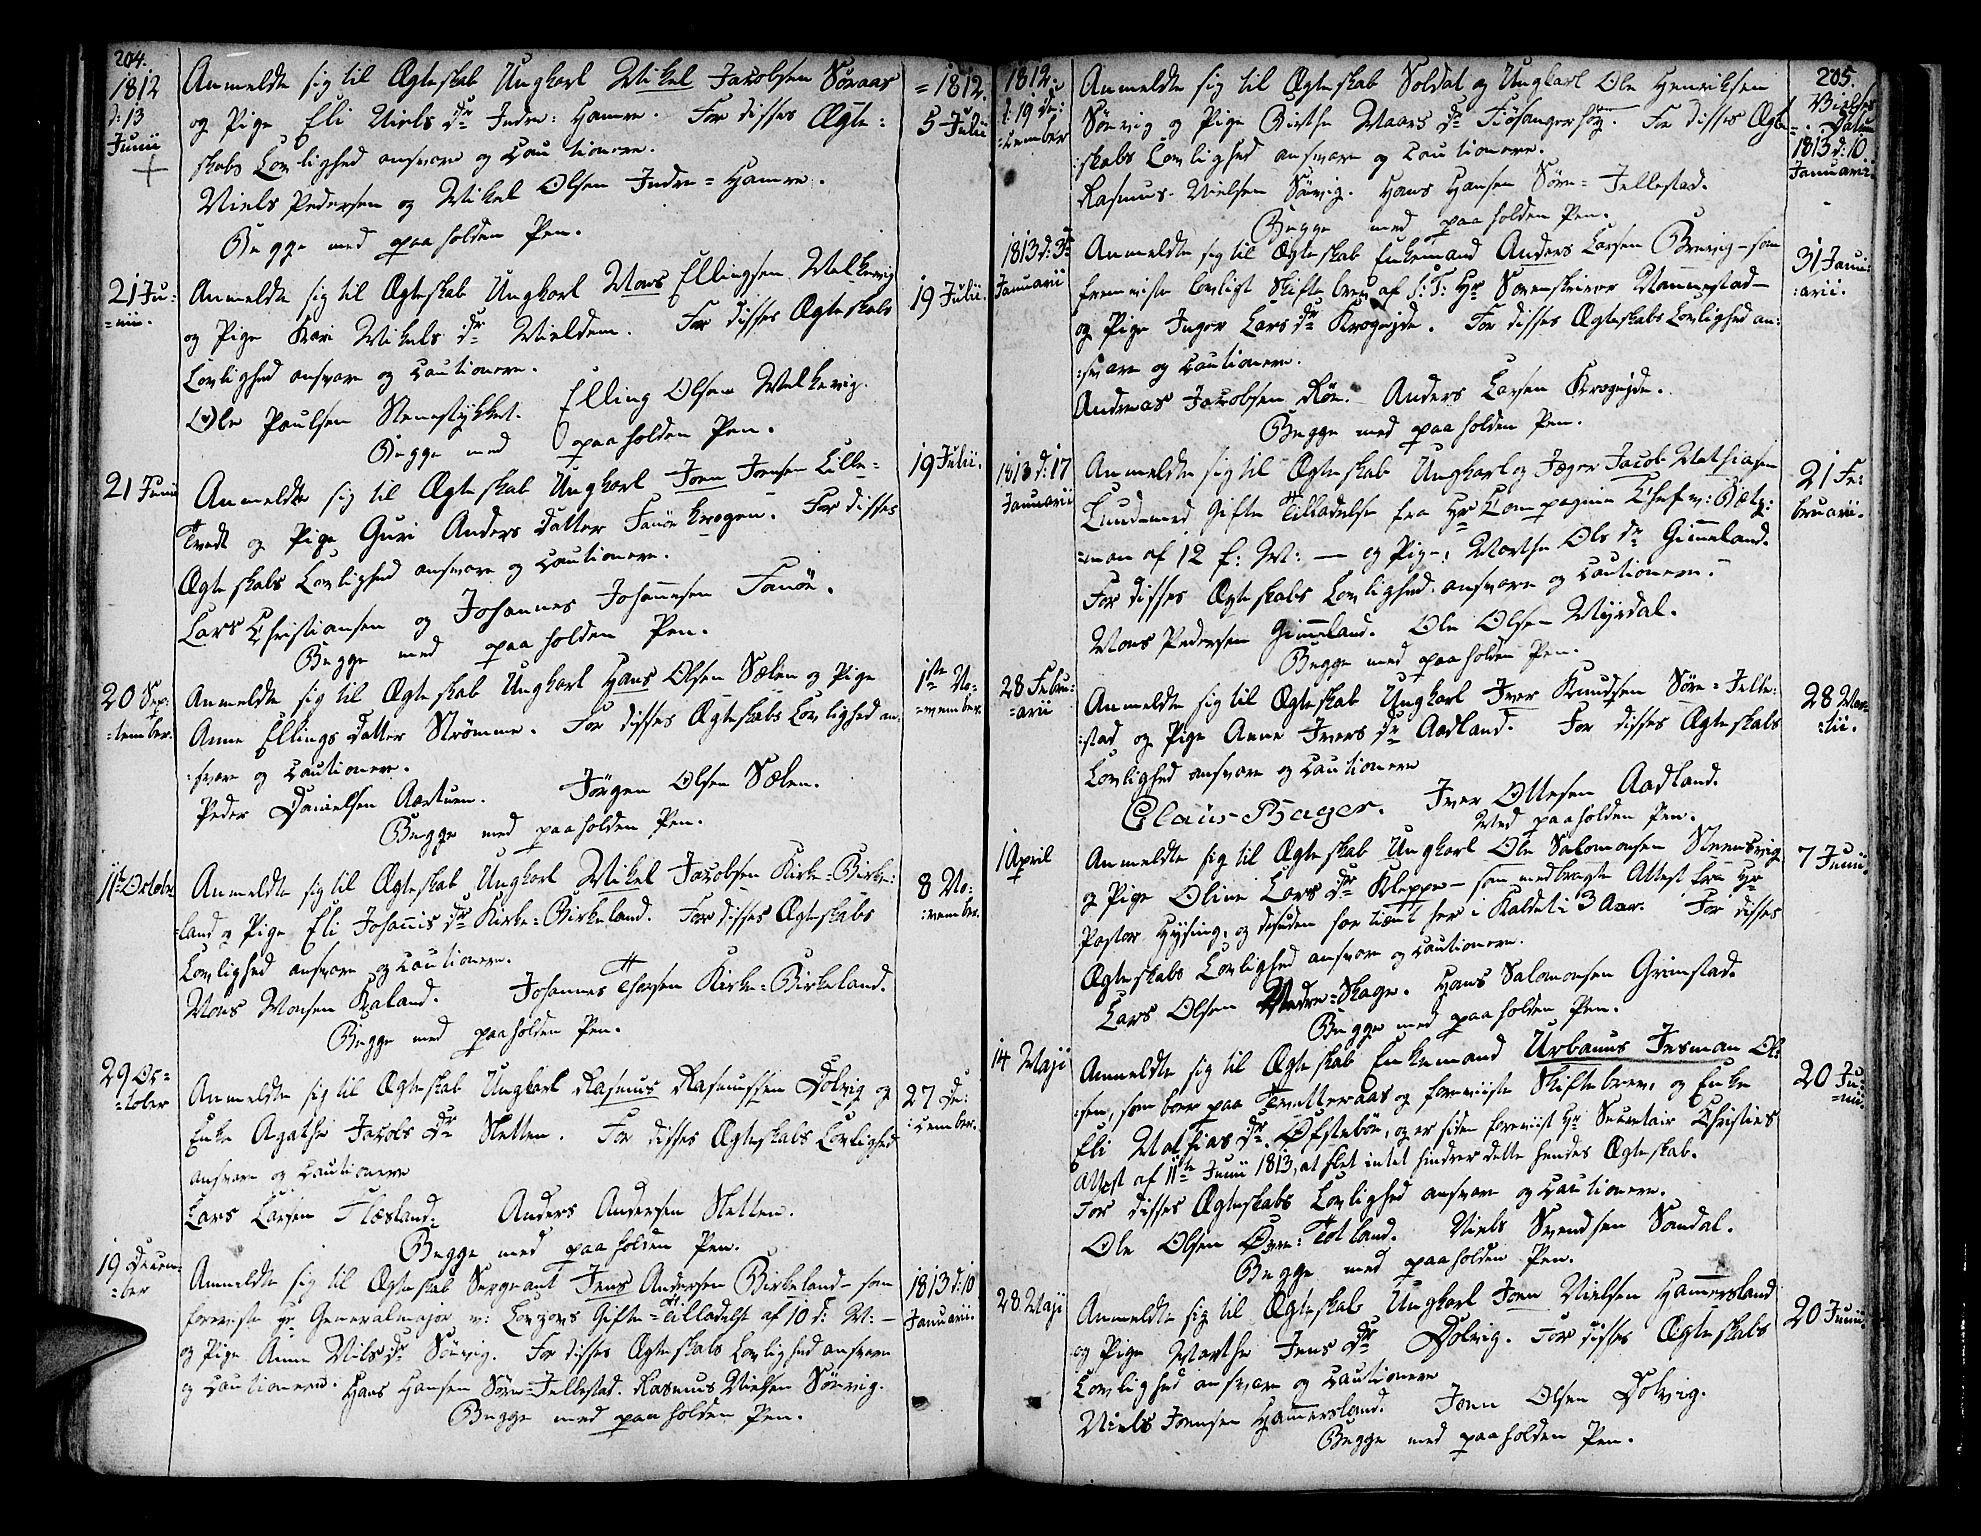 204.
1812
d: 13
Junii
Anmeldte sig til Ægteskab Ungkarl Mikel Jacobsen Søraas
og Pige Eli Niels dr Indre: Hamre. For disses Ægte:
skabs Lovlighed ansvare og Cautionere.
Niels Pedersen og Mikel Olsen Indre = Hamre.
Begge med paaholden Pen.
= 1812.
5 Julii
21 Ju:
=nii.
Anmeldte sig til Ægteskab Ungkarl Mons Ellingsen Melkevig
og Pige Kari Mikels dr Mieldem. For disses Ægteskabs
Lovlighed ansvare og Cautionere.
Ole Poulsen Stenestykket. Elling Olsen Melkevig.
Begge med paaholden Pen.
19 Julii.
21 Junii
Anmeldte sig til Ægteskab Ungkarl Joen Joensen Lille=
Tvedt og Pige Guri Anders datter Fanøekrogen. For disses
Ægteskabs Lovlighed ansvare og Cautionere.
Lars Christiansen og Johannes Johannesen Fanöe.
Begge med paaholden Pen.
19 Julii.
20 Sep:
=tember.
Anmeldte sig til Ægteskab Ungkarl Hans Olsen Sælen og Pige
Anne Ellings datter Strømme. For disses Ægteskabs Lovlighed an:
:svare og Cautionere.
Peder Danielsen Aartuen. Jörgen Olsen Sælen.
Begge med paaholden Pen.
1ste No=
=vember.
11te Octobr
Anmeldte sig til Ægteskab Ungkarl Mikel Jacobsen Kirke=Birke:
=land og Pige Eli Johannis dr Kirke=Birkeland. For disses Ægteskabs
Lovlighed ansvare og Cautionere.
Mons Monsen Kaland. Johannes Thorsen Kirke=Birkeland.
Begge med paaholden Pen.
8 No:
:vember.
29 Oc=
=tober
Anmeldte sig til Ægteskab Ungkarl Rasmus Rasmussen Dolvig og
Enke Agathe Jacobs dr Sletten. For disses Ægteskabs Lovlighed
ansvare og Cautionere
Lars Larsen Flesland. Anders Andersen Sletten.
Begge med paaholden Pen.
27 De:
:cember.
19 Decem=
=ber
Anmeldte sig til Ægteskab Sergeant Jens Andersen Birkeland - som
foreviste Hr Generalmajor v: Lowzows Gifte=Tilladelse af 10 d: M: -
og Pige Anna Nils dr Sörvig. For disses Ægteskabs Lovlighed ansvare
og Cautionere. Hans Hansen Søre=Jellestad. Rasmus Nielsen Sörvig.
Begge med paaholden Pen.
1813 d: 10
Januarii
1812.
d: 19 De:
:cember
Anmeldte sig til Ægteskab Soldat og Ungkarl Ole Henriksen
Sörvig og Pige Birthe Maars dr Fiösangershög. For disses Ægte
:skabs Lovlighed ansvare og Cautionere.
Rasmus Nielsen Sörvig. Hans Hansen Søre=Jellestad.
Begge med paaholden Pen.
205.
Vielses
Datum
1813 d: 10.
Januarii.
1813 d: 3de
Januarii
Anmeldte sig til Ægteskab Enkemand Anders Larsen Brevig - som
fremviste lovligt Skiftebrev af S: T: Hr Sorenskriver Mannestad -
og Pige Inger Lars dr Krogejde. For disses Ægteskabs Lovlighed an:
:svare og Cautionere.
Andreas Jacobsen Röe. Anders Larsen Krogejde.
Begge med paaholden Pen.
31 Janu:
:arii.
1813 d: 17
Januarii
Anmeldte sig til Ægteskab Ungkarl og Jæger Jacob Mathiasen
Lunde med Gifte Tilladelse fra Hr Compagnie Chef v: Bætz:
=man af 12 f: M: - og Pige: Marthe Ols dr Gimeland.
For disses Ægteskabs Lovlighed, ansvare og Cautionere.
Mons Pedersen Gimeland. Ole Olsen Myrdal.
Begge med paaholden Pen.
21 Fe:
bruarii.
28 Febru=
=arii
Anmeldte sig til Ægteskab Ungkarl Iver Knudsen Søre=Jelle:
:stad og Pige Anne Ivers dr Aadland. For disses Ægteskabs
Lovlighed ansvare og Cautionere
Claus Bager. Iver Ottesen Aadland.
Med paaholden Pen.
28 Mar=
:tii.
1 April
Anmeldte sig til Ægteskab Ungkarl Ole Salomonsen Steensvig
og Pige Oline Lars dr Kleppe - som medbragte Attest fra Hr
Pastor Hysing, og desuden har tient her i Kaldet i 3 Aar. For disses
Ægteskabs Lovlighed ansvare og Cautionere.
Lars Olsen Nedre=Skage. Hans Salomonsen Grimstad.
Begge med paaholden Pen.
7 Junii.
14 Maji
Anmeldte sig til Ægteskab Enkemand Urbanus Jesman Ol:
:sen, som boer paa Tvetteraas og foreviiste Skiftebrev, og Enke
Eli Mathias dr Øfstebön, og er siden foreviist Hr Secretair Christies
Attest af 11te Junii 1813, at slet intet hindrer dette hendes Ægteskab.
For disses Ægteskabs Lovlighed ansvare og Cautionere.
Ole Olsen Øvre:Totland. Niels Svendsen Sandal.
Begge med paaholden Pen.
20 Ju:
=nii.
28 Maji
Anmeldte sig til Ægteskab Ungkarl Joen Nielsen Hamersland
og Pige Marthe Jens dr Dolvig. For disses Ægteskabs
Lovlighed ansvare og Cautionere
Niels Joensen Hamersland. Joen Olsen Dolvig.
Begge med paaholden Pen.
20 Junii.